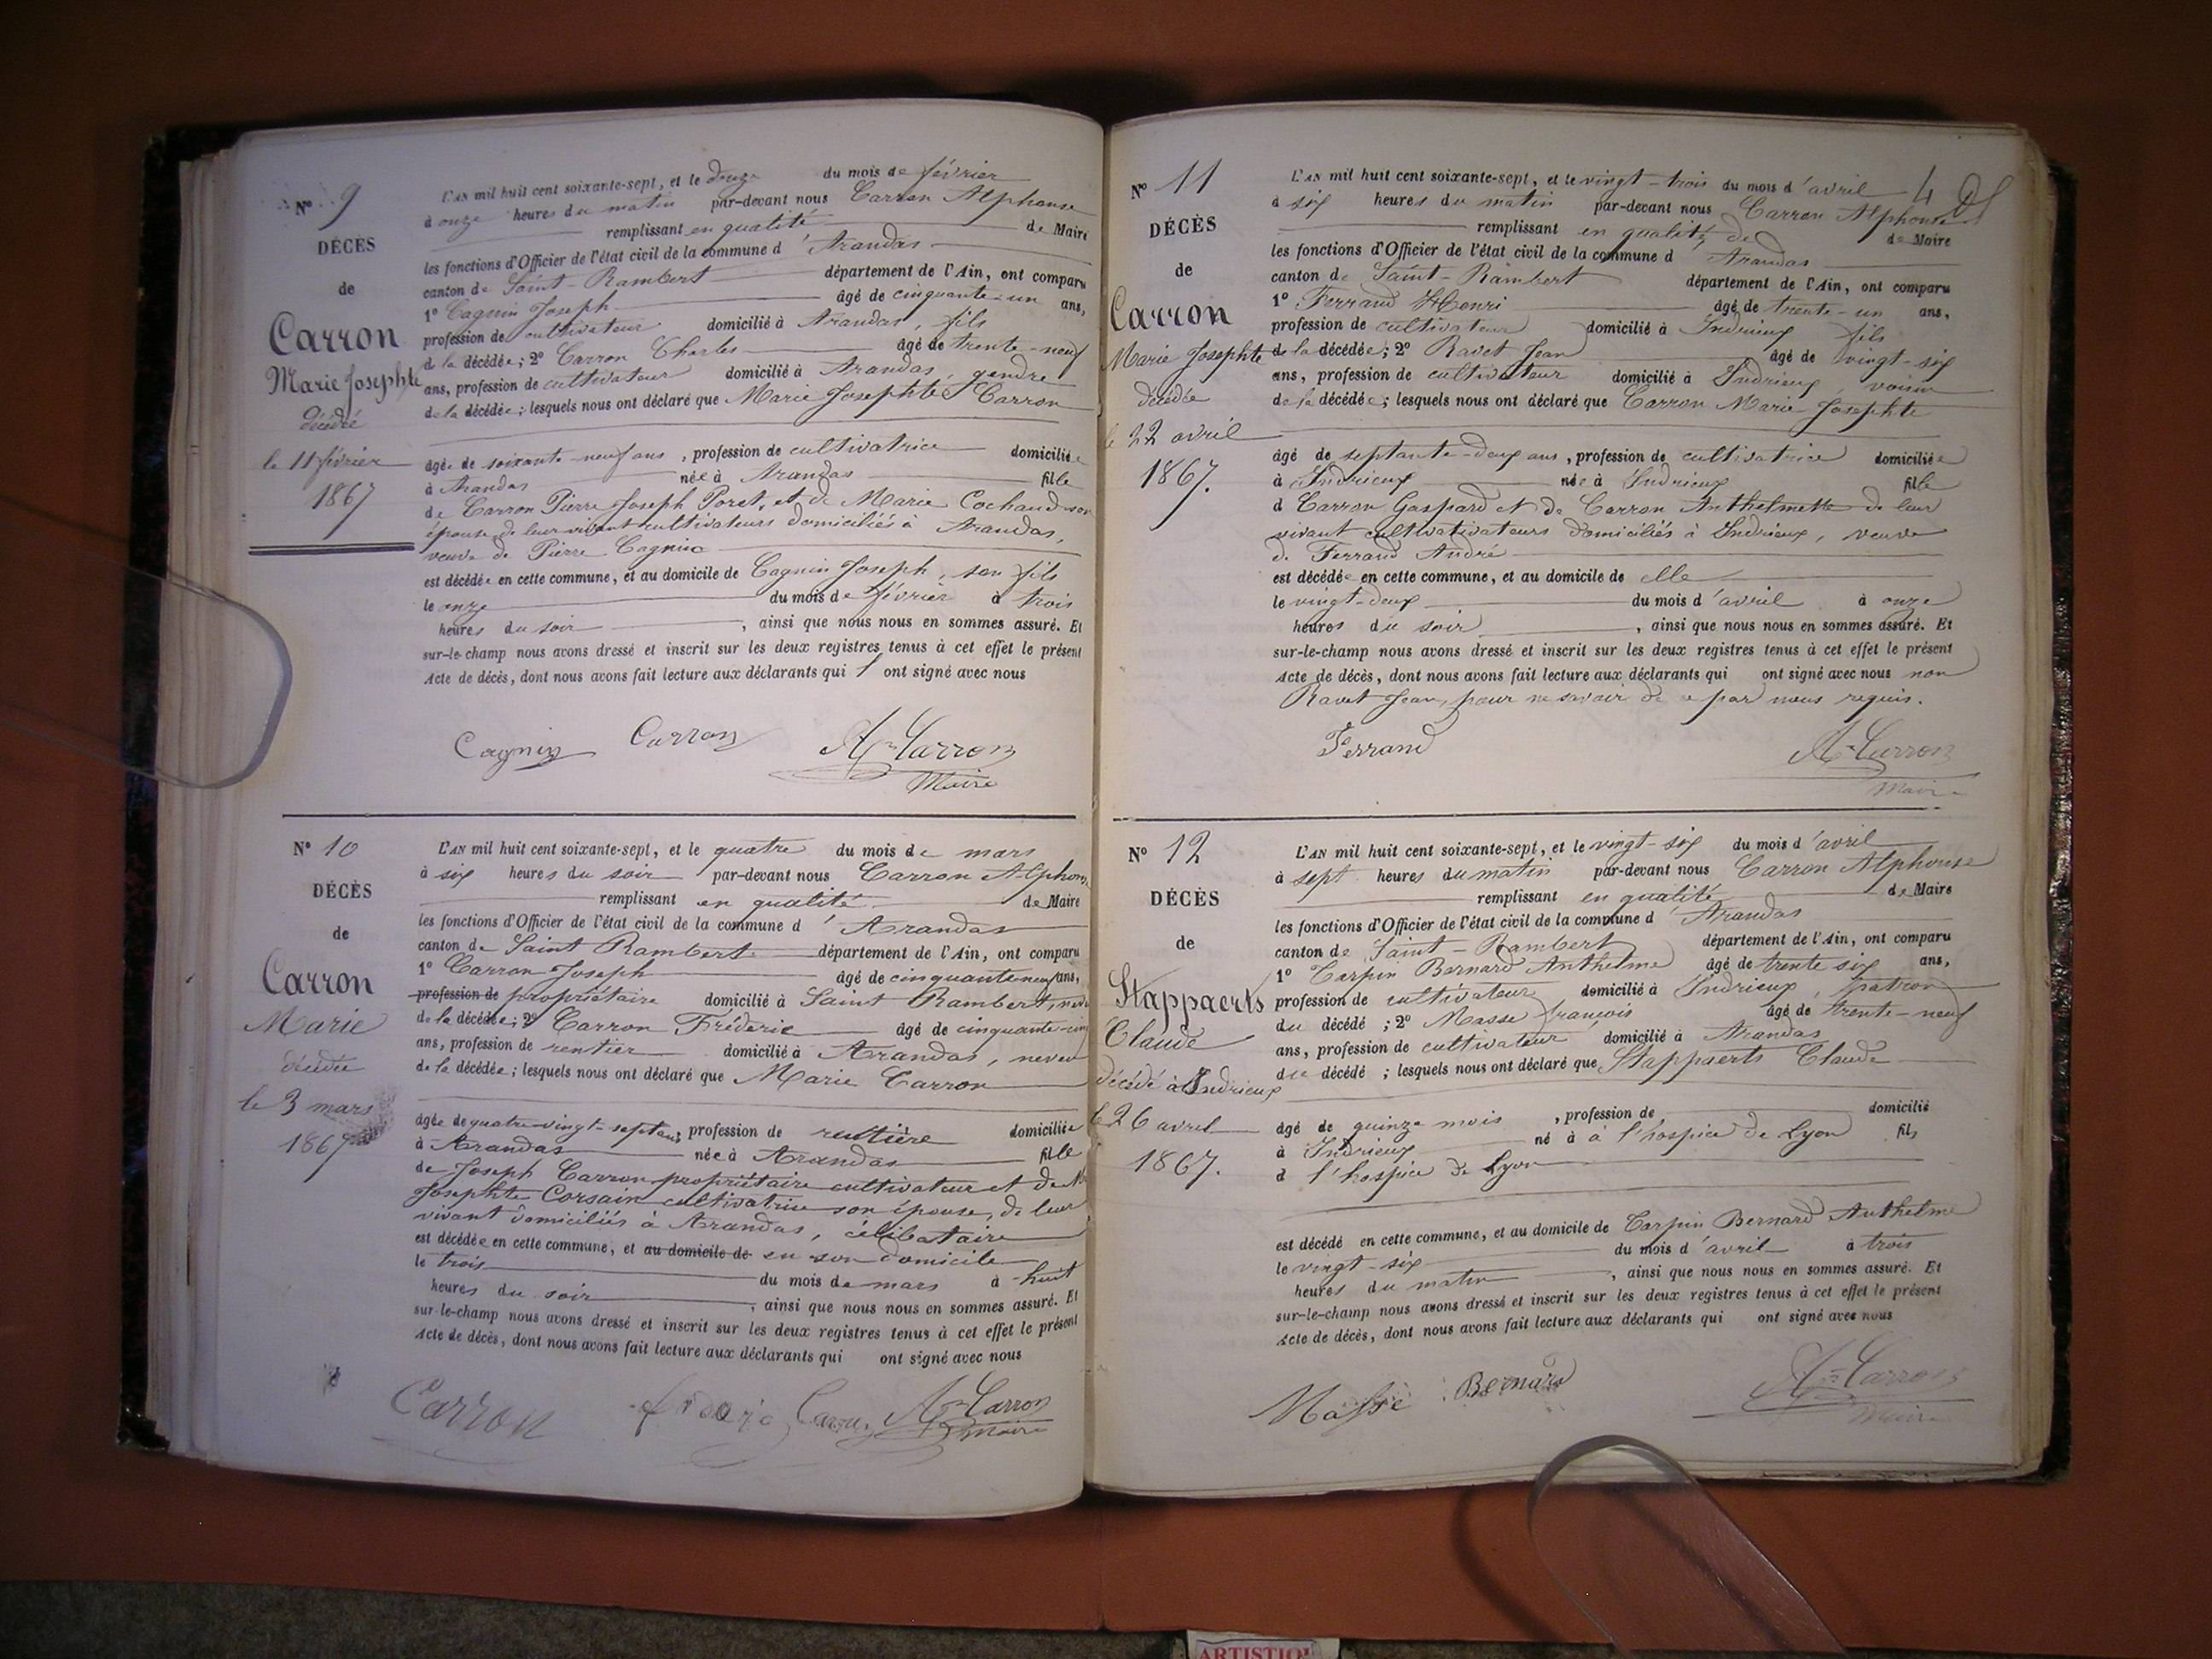 N° 9
DÉCÈS
de
Carron
Marie Josephte
décédé
le 11 février
1867
L'AN mil huit cent soixante-sept, et le douze du mois de février
à onze heures du matin par-devant nous Carron Alphonse
remplissant en qualité de Maire
les fonctions d'Officier de l'état civil de la commune d'Arandas
canton de Saint-Rambert département de l'Ain, ont comparu
1° Cagnin Joseph âgé de cinquante-un ans,
profession de cultivateur domicilié à Arandas, fils
de la décédée; 2° Carron Charles âgé de trente-neuf
ans, profession de cultivateur domicilié à Arandas, gendre
de la décédée; lesquels nous ont déclaré que Marie Josephte Carron
âgée de soixante-neuf ans, profession de cultivatrice domiciliée
à Arandas née à Arandas fille
de Carron Pierre Joseph Poret, et de Marie Cochaud son
épouse de leur vivant cultivateurs domiciliés à Arandas,
veuve de Pierre Cagnin
est décédée en cette commune, et au domicile de Cagnin Joseph, son fils
le onze du mois de février à trois
heures du soir, ainsi que nous nous en sommes assuré. Et
sur-le-champ nous avons dressé et inscrit sur les deux registres tenus à cet effet le présent
Acte de décès, dont nous avons fait lecture aux déclarants qui l'ont signé avec nous
Cagnin Carron An Carron
Maire
N° 10
DÉCÈS
de
Carron
Marie
décédée
le 3 mars
1867
L'AN mil huit cent soixante-sept, et le quatre du mois de mars
à six heures du soir par-devant nous Carron Alphonse
remplissant en qualité de Maire
les fonctions d'Officier de l'état civil de la commune d'Arandas
canton de Saint Rambert département de l'Ain, ont comparu
1° Carron Joseph âgé de cinquante neuf ans,
profession de propriétaire domicilié à Saint Rambert, neveu
de la décédée; 2° Carron Fréderic âgé de cinquante-cinq
ans, profession de rentier domicilié à Arandas, neveu
de la décédée; lesquels nous ont déclaré que Marie Carron
âgée de quatre-vingt-sept ans, profession de rentière domiciliée
à Arandas née à Arandas fille
de Joseph Carron propriétaire cultivateur et de
Josephte Corsain cultivatrice son épouse, de leur
vivant domiciliés à Arandas, célibataire
est décédée en cette commune, et au domicile de en son domicile
le trois du mois de mars à huit
heures du soir, ainsi que nous nous en sommes assuré. Et
sur-le-champ nous avons dressé et inscrit sur les deux registres tenus à cet effet le présent
Acte de décès, dont nous avons fait lecture aux déclarants qui ont signé avec nous
Carron Carron An Carron
Maire
4
N° 11
DÉCÈS
de
Carron
Marie Josephte
décédée
le 22 avril
1867.
L'AN mil huit cent soixante-sept, et le vingt-trois du mois d'avril
à six heures du matin par-devant nous Carron Alphonse
remplissant en qualité de de Maire
les fonctions d'Officier de l'état civil de la commune d Arandas
canton de Saint-Rambert département de l'Ain, ont comparu
1° Ferrand Henri âgé de trente-un ans,
profession de cultivateur domicilié à Indrieux fils
de la décédée; 2° Ravet Jean âgé de vingt-six
ans, profession de cultivateur domicilié à Indrieux, voisin
de la décédée; lesquels nous ont déclaré que Carron Marie Josephte
âgé de septante-deux ans, profession de cultivatrice domiciliée
à Indrieux née à Indrieux fille
d Carron Gaspard et de Carron Anthelmette de leur
vivant cultivativateurs domiciliés à Indrieux, veuve
de Ferrand André
est décédée en cette commune, et au domicile de elle
le vingt-deux du mois d'avril à onze
heures du soir, ainsi que nous nous en sommes assuré. Et
sur-le-champ nous avons dressé et inscrit sur les deux registres tenus à cet effet le présent
Acte de décès, dont nous avons fait lecture aux déclarants qui ont signé avec nous non
Ravet Jean, pour ne savoir de ce par nous requis.
Ferrand An Carron
Maire
N° 12
DÉCÈS
de
Stappaerts
Claude
décédé à Indrieux
le 26 avril
1867.
L'AN mil huit cent soixante-sept, et le vingt-six du mois d'avril
à sept heures du matin par-devant nous Carron Alphonse
remplissant en qualité de Maire
les fonctions d'Officier de l'état civil de la commune d'Arandas
canton de Saint-Rambert département de l'Ain, ont comparu
1° Carpin Bernard Anthelme âgé de trente six ans,
profession de cultivateur domicilié à Indrieux, patron
du décédé; 2° Masse françois âgé de trente-neuf
ans, profession de cultivateur domicilié à Arandas
du décédé; lesquels nous ont déclaré que Stappaerts Claude
âgé de quinze mois, profession de domicilié
à Indrieux né à à l'hospice de Lyon fils
d l'hospice de Lyon
est décédé en cette commune, et au domicile de Carpin Bernard Anthelme
le vingt-six du mois d'avril à trois
heures du matin, ainsi que nous nous en sommes assuré. Et
sur-le-champ nous avons dressé et inscrit sur les deux registres tenus à cet effet le présent
Acte de décès, dont nous avons fait lecture aux déclarants qui ont signé avec nous
Masse Bernard An Carron
Maire